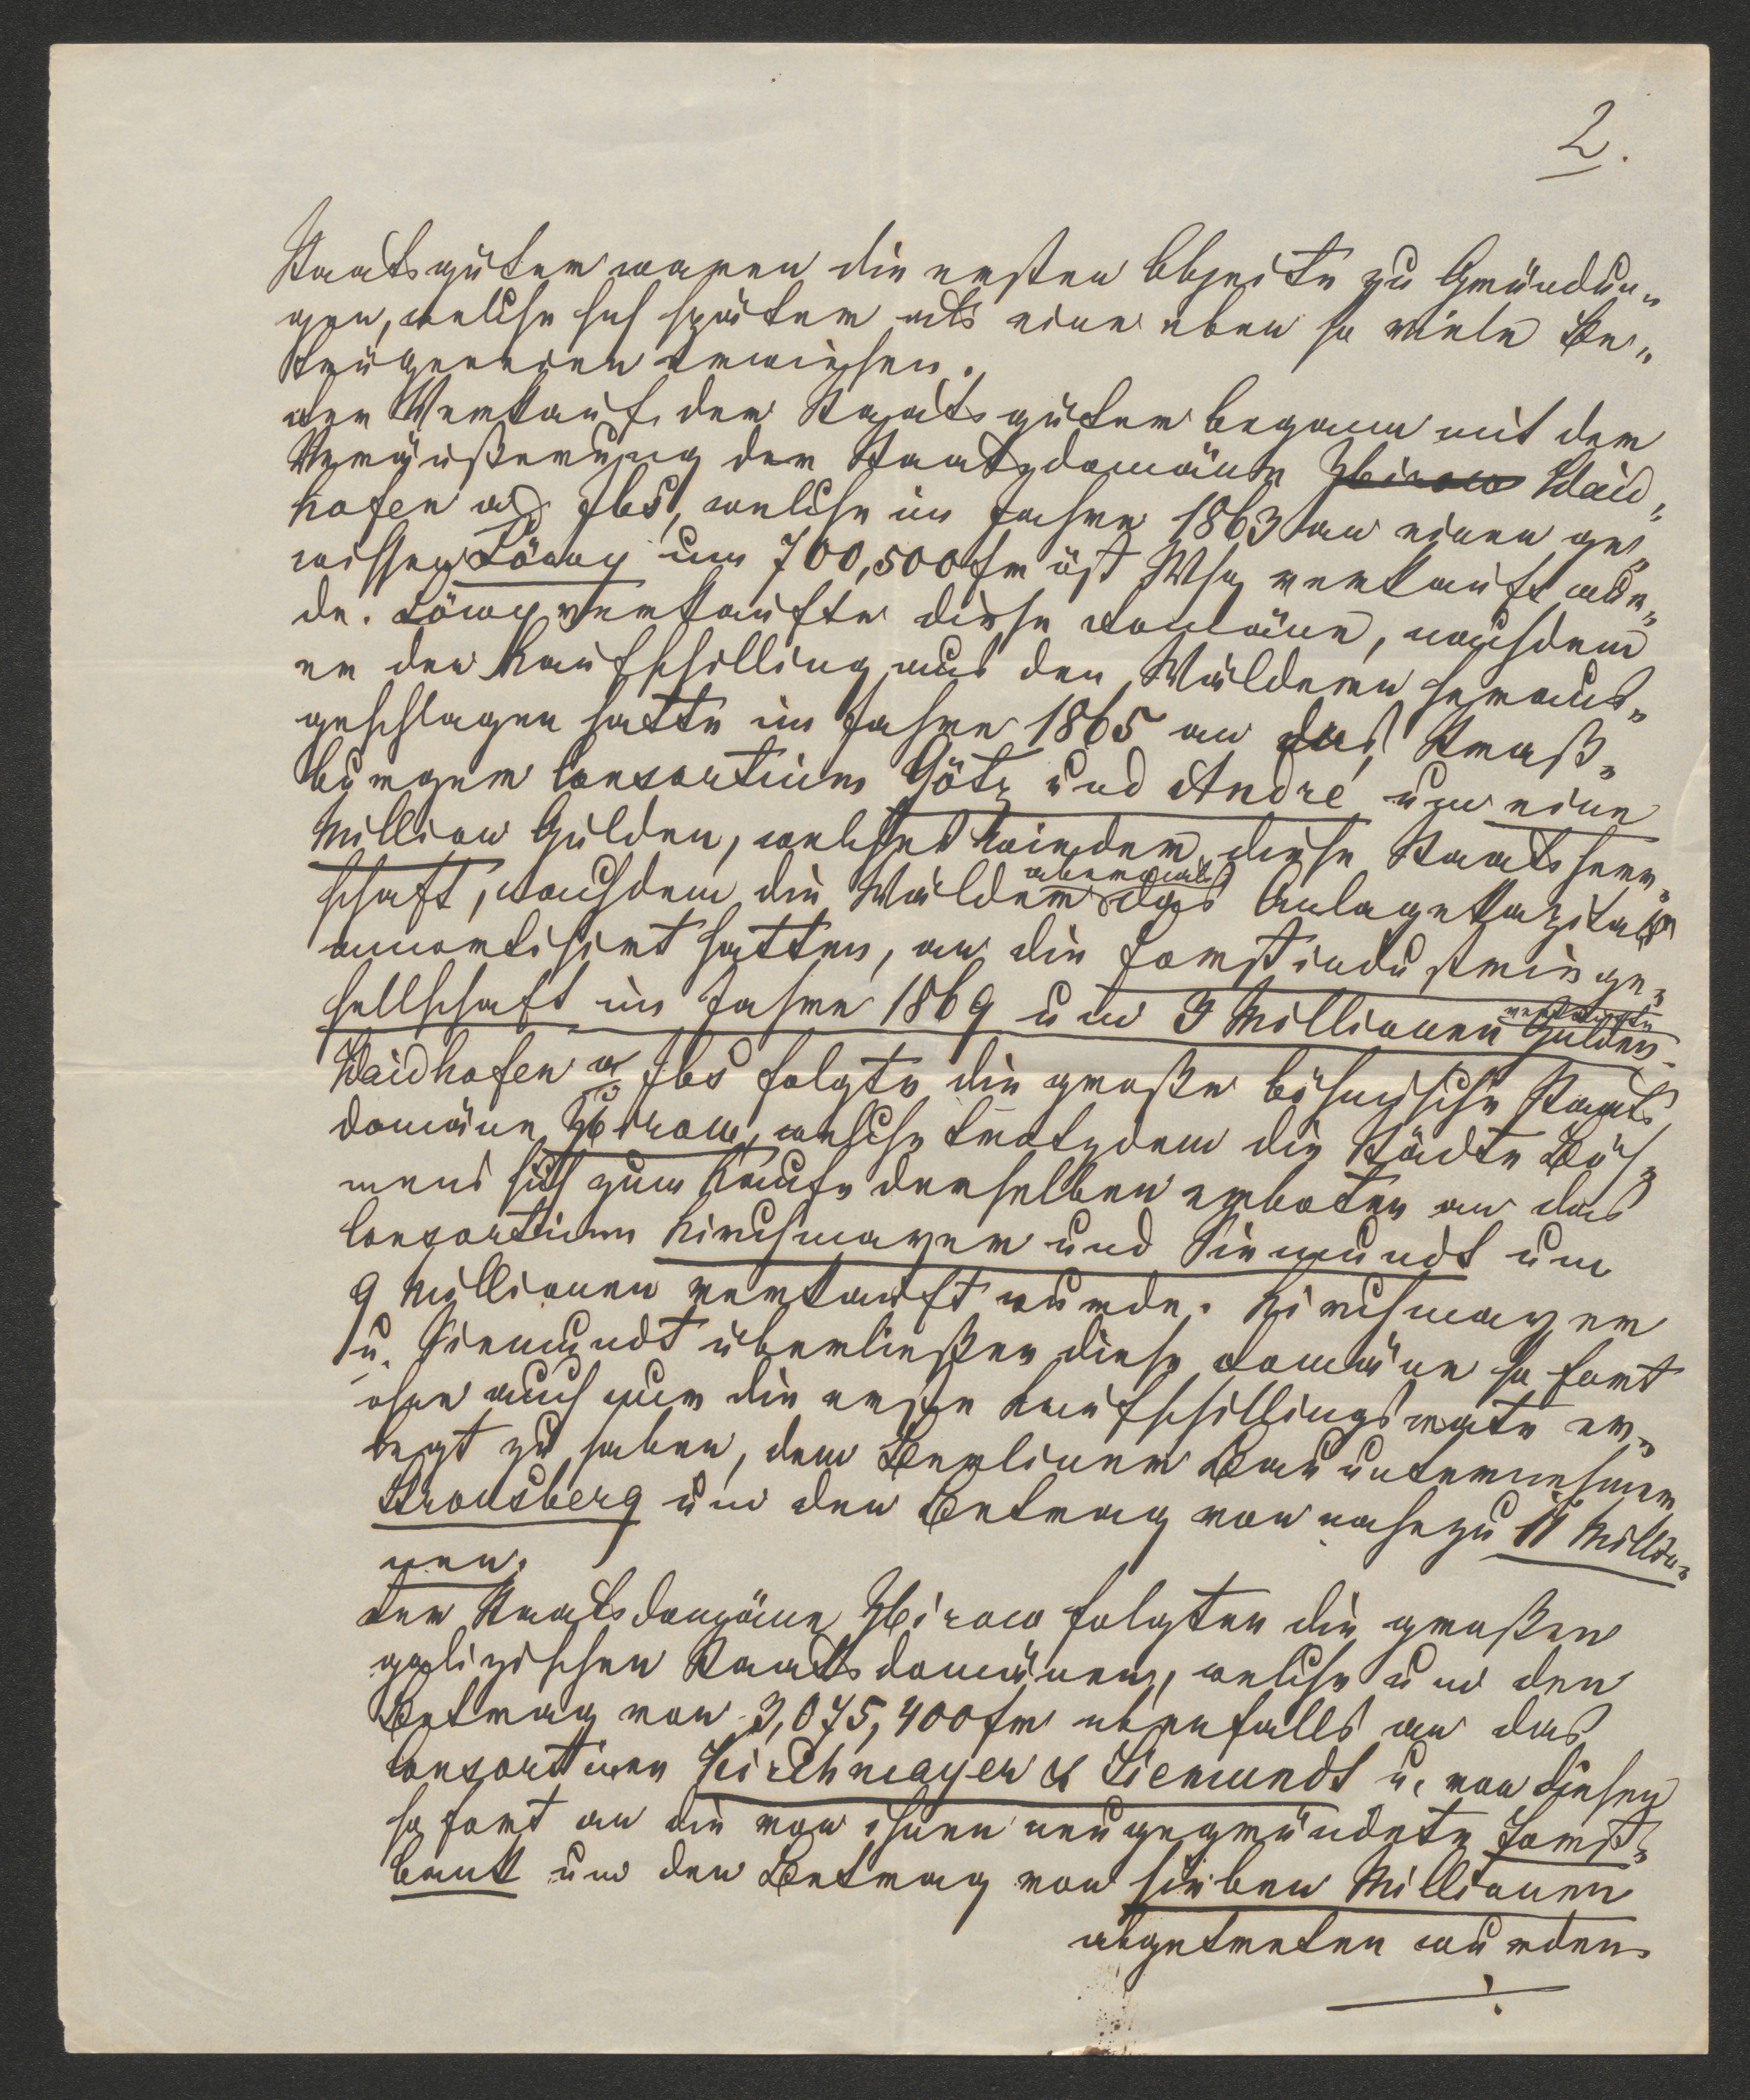 2.
Staatsgüter waren die ersten Objeite zu Gründun„
gen, welche sich später als eine eben so viele Be„
trügereien erwiesen.
Der Verkauf der Staatsgüter begann mit der
Veräußerung der Staatsdomäne Zbirow Waid„
hofen a/d Jbs, welche im Jahre 1863 an einen ge„
wissen Löwy um 700,500 fr öst Whg verkauft wur„
de. Löwy verkaufte diese Domäne, nachdem
er den Kaufschilling aus den Wäldern heraus„
geschlagen hatte im Jahre 1865 an das Straß„
burger Consortium Götz und André um eine
Million Gulden, welches wieder diese Staatsherr„
schaft, nachdem die Wälder abermals das Anlagekapital
amortisirt hatten, an die Forstindustriege„
sellschaft im Jahre 1869 um 3 Millionen Gulden verkaufte
Waidhofen a/ Jbs folgte die große böhmische Staats
domäne Zbirow, welche trotzdem die Städte Böh„
mens sich zum Kaufe derselben erboten an das
Consortium Kirchmayer und Siemundt um
9 Millionen verkauft wurde. Kirchmayer
u. Siemundt überließen diese Domäne sofort
ohne auch nur die erste Kaufschillingsrate er„
legt zu haben, dem Berliner Bauunternehmer
Strousberg um den Betrag von nahezu 11 Millio„
nen.
Der Staatsdomäne Zbirow folgten die großen
galizischen Staatsdomänen, welche um den
Betrag von 3,075,400 fr ebenfalls an das
Consortium Kirchmayer & Siemundt u. von diesen
sofort an die von ihnen neugegründete Forst„
bank um den Betrag von sieben Millionen
abgetreten wurden.